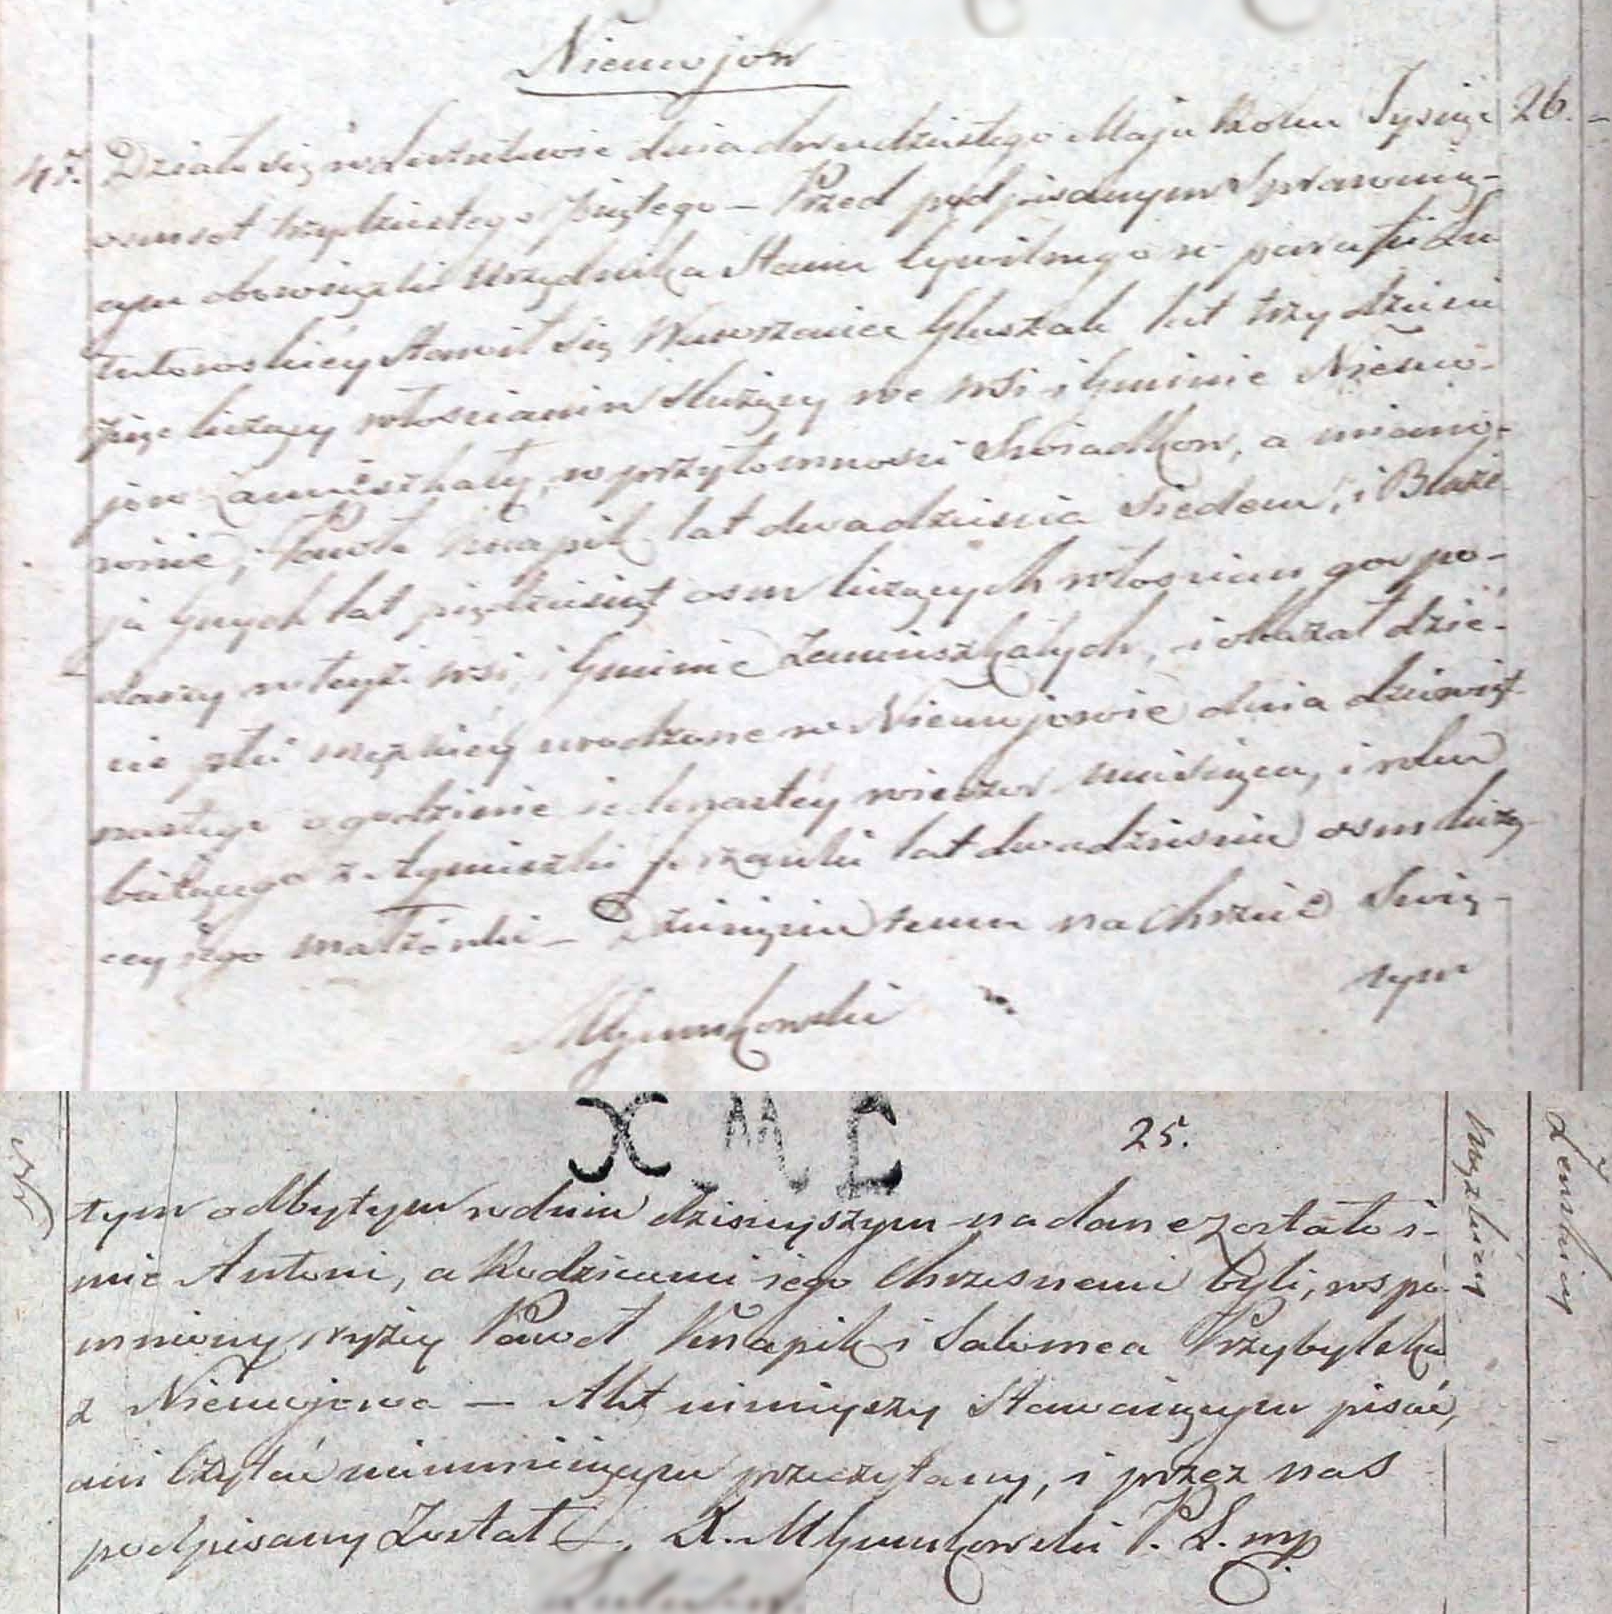 Niemojow
47. Działo się w dnia dwudziestego Maja Roku Tysiąc 26.
osmset trzydziestego piątego — Przed podpisanym Sprawuią-
cym obowiązki Urzędnika Stanu Cywilnego w parafii Lu
tutowskiéy stawił się Wawrzeniec Głuszak lat trzydzieści
pięc liczący włościanin służący we wsi i Gminie Niemo-
jow zamieszkały, w przytomnosci Swiadkow, a miano-
wicie; Pawła Knapik lat dwadziescia siedem, i Błaże
ja Gnych lat pięćdziesiąt osm liczących włościan gospo-
darzy w teyże wsi, i Gminie Zamieszkałych, i okazał dzie-
cie płci męzkiéy urodzone w Niemojowie dnia dziewięt
nastego o godzinie iedenastéy wieczor miesiąca, i roku
bieżącego z Agnieszki lat dwadziescia osm liczą-
cey iego małżonki — Dziecięciu temu na Chrzcie Swię-
tym
Młynkowski
X M C
25.
tym odbytym w dniu dzisieyszym nadane zostało i-
mie Antoni, a Rodzicami iego Chrzesnemi byli, wspo-
mniony wyżey Paweł Knapik i Salomea Przybylska
z Niemojowa — Akt ninieyszy Stawaiącym pisać,
ani Czytać nieumieiącym przeczytany, i przez nas
podpisany Został. X. Młynkowski P. L. mp
Męzkiey
Zenskiey